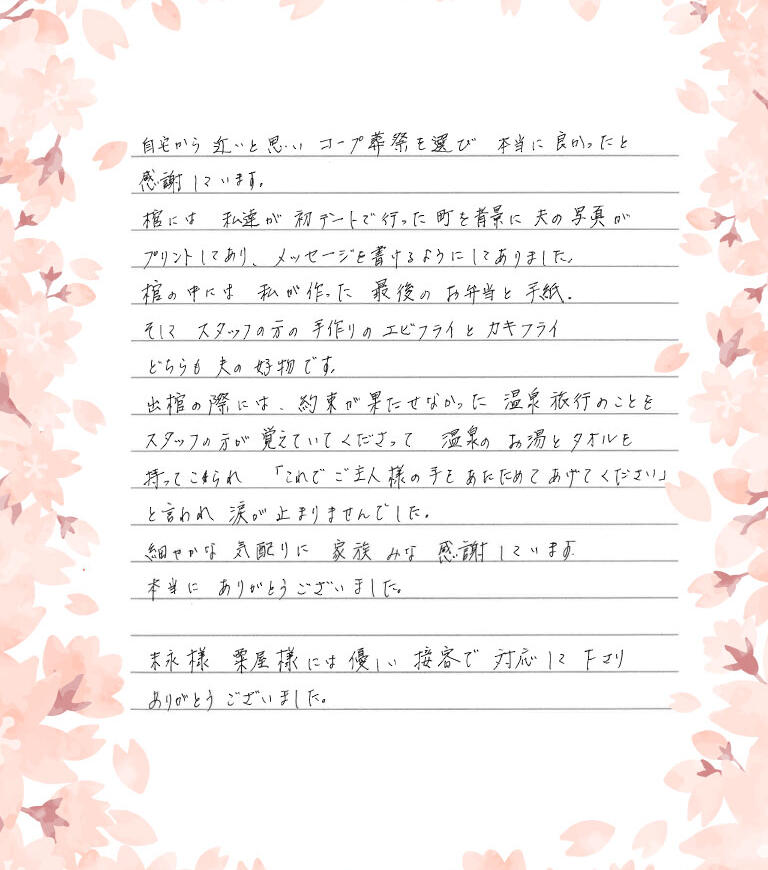 自宅から 近いと思い コープ葬祭を選び 本当に良かったと
感謝しています。
棺には 私達が 初デートで行った町を背景に 夫の写真が
プリントしてあり、メッセージを書けるようにしてありました。
棺の中には 私が作った 最後の お弁当と手紙.
そして スタッフの方の 手作りの エビフライと カキフライ
どちらも 夫の好物です。
出棺の際には、約束が果たせなかった 温泉旅行のことを
スタッフの方が 覚えていてくださって 温泉の お湯とタオルを
持ってこられ 「これで ご主人様の手を あたためて あげてください」
と言われ 涙が止まりませんでした。
細やかな 気配りに 家族 みな 感謝しています
本当に ありがとうございました。
末永様 栗屋様には 優しい 接客で 対応して 下さり
ありがとうございました。